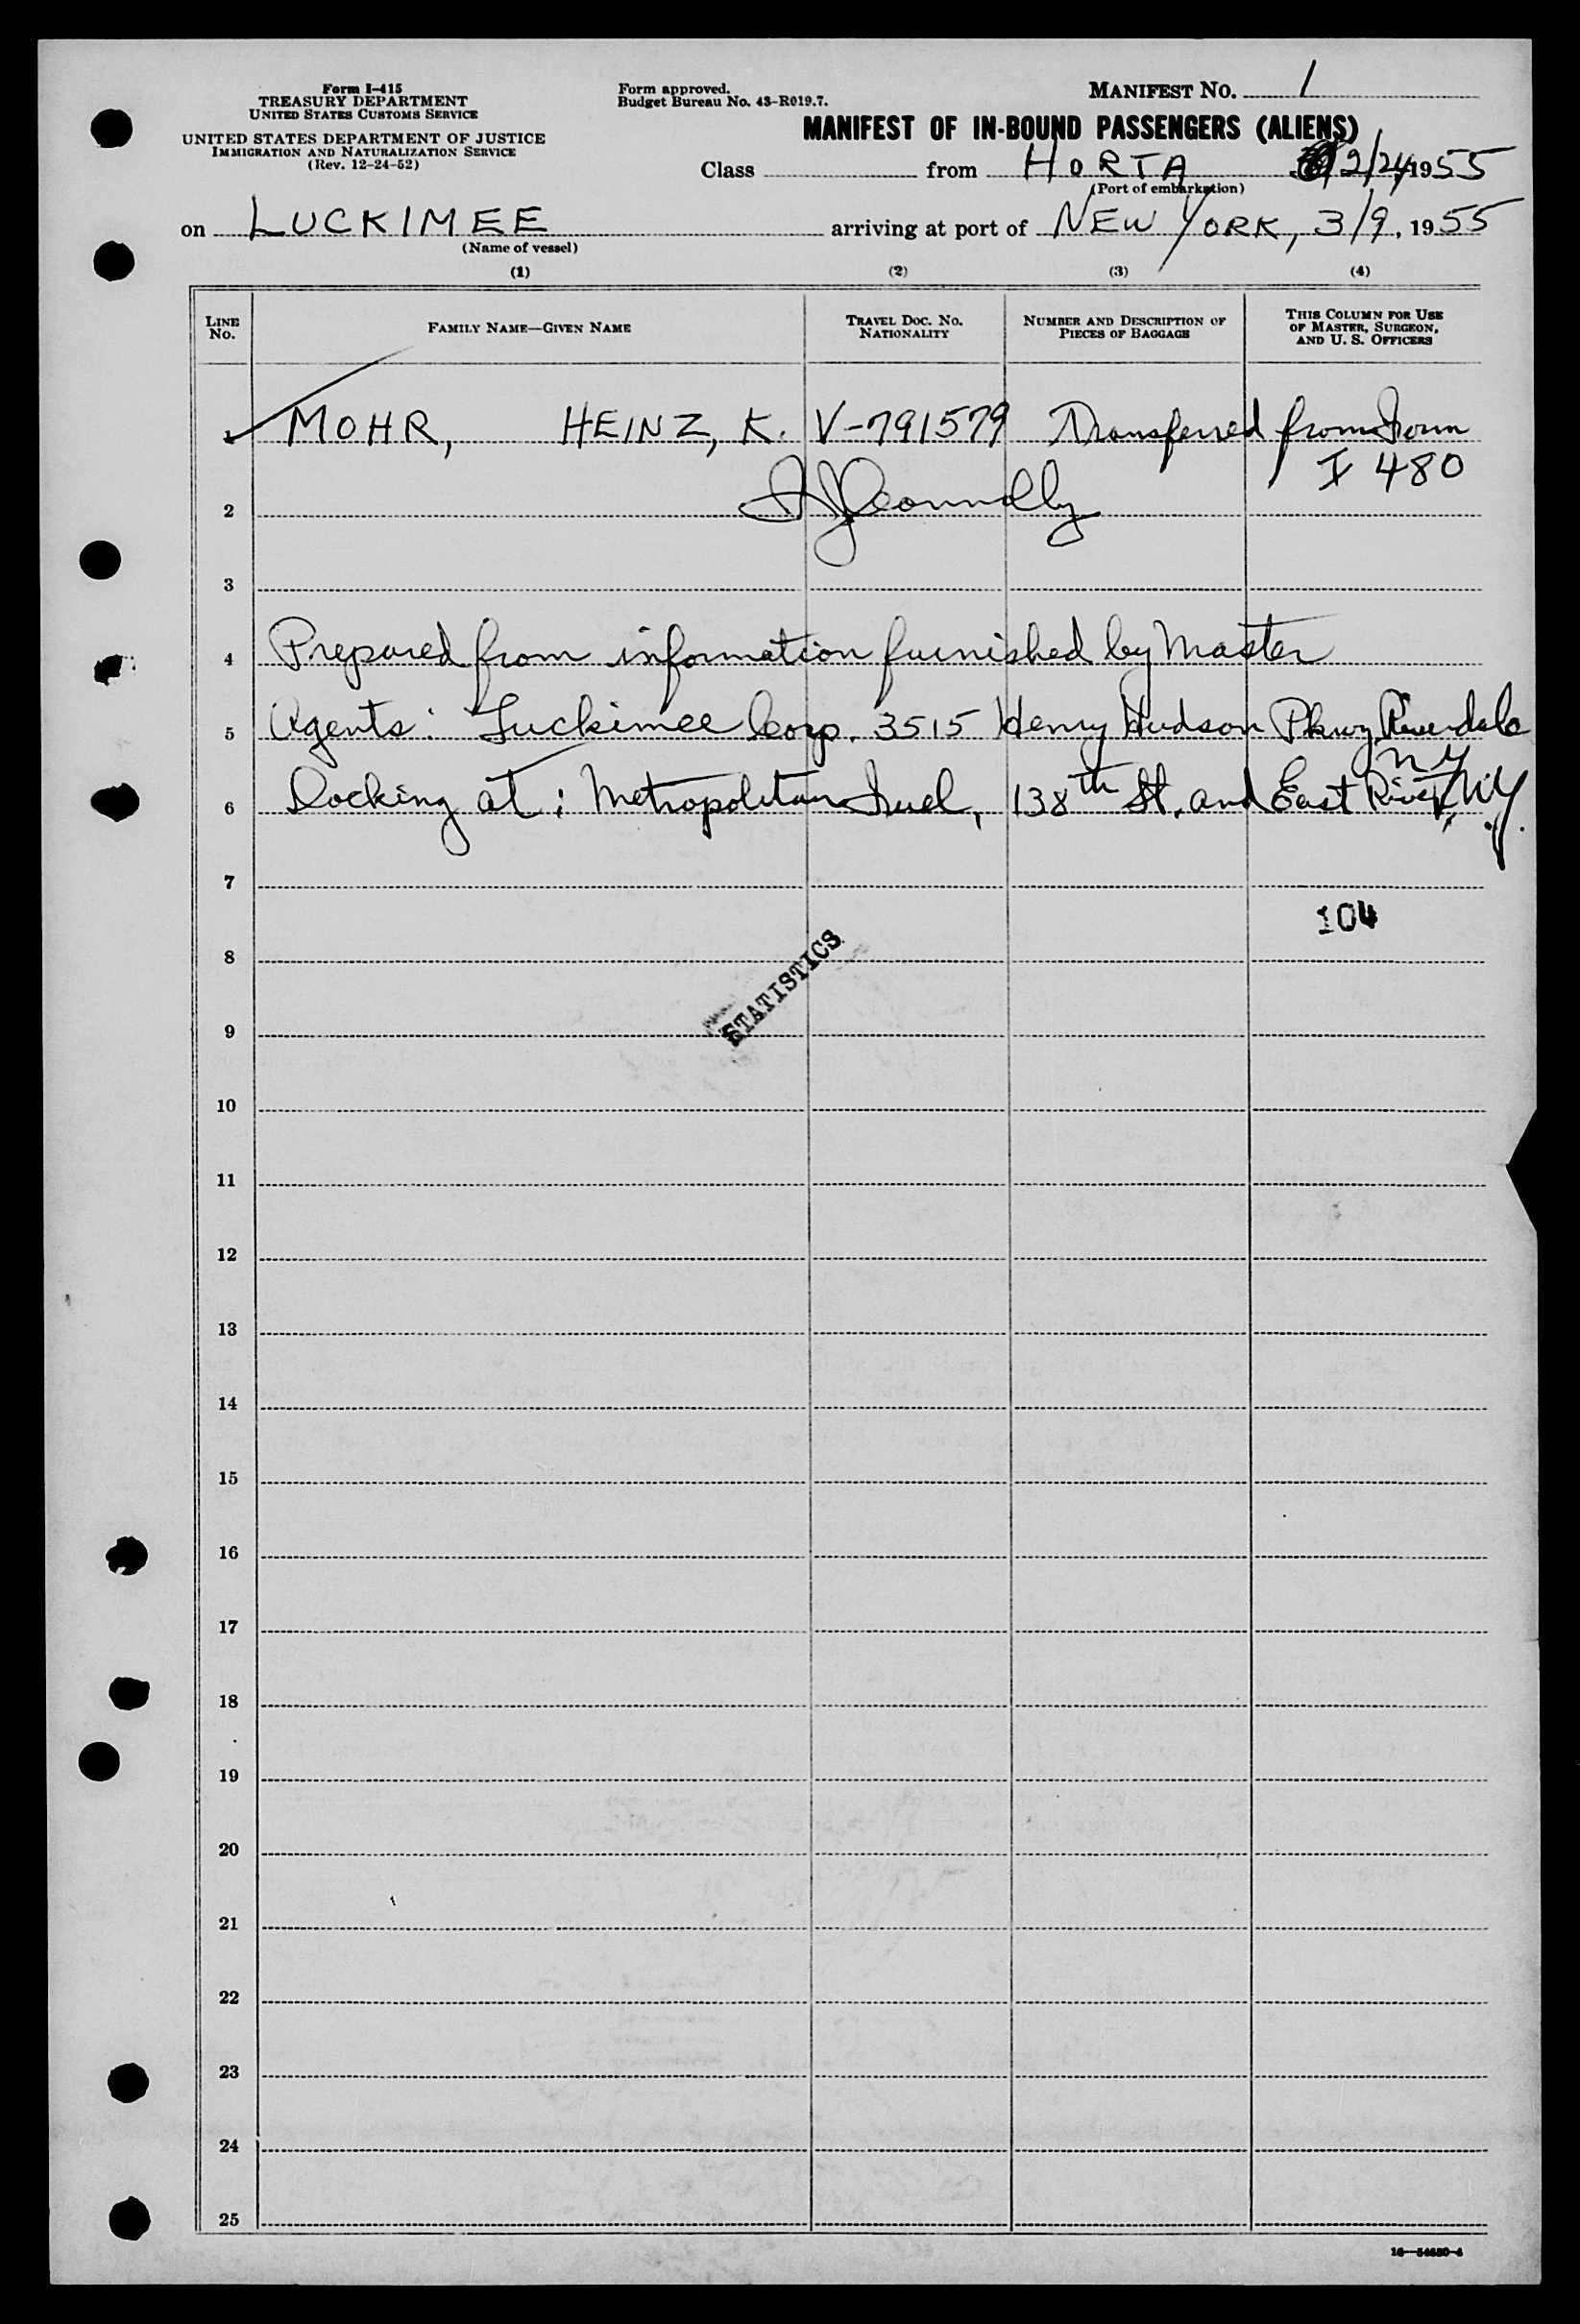 Form I-415
TREASURY DEPARTMENT
UNITED STATES CUSTOMS SERVICE
UNITED STATES DEPARTMENT OF JUSTICE
IMMIGRATION AND NATURALIZATION SERVICE
(Rev. 12-24-52)
Form approved.
Budget Bureau No. 43-R019.7.
MANIFEST NO. 1
MANIFEST OF IN-BOUND PASSENGERS (ALIENS)
Class from HORTA 2/24, 1955
(Port of embarkation)
on LUCKIMEE arriving at port of NEW YORK, 3/9, 1955
(Name of vessel)
(1) (2) (3) (4)
LINE NO. FAMILY NAME—GIVEN NAME TRAVEL DOC. NO. NATIONALITY NUMBER AND DESCRIPTION OF PIECES OF BAGGAGE THIS COLUMN FOR USE OF MASTER, SURGEON, AND U. S. OFFICERS
1 MOHR, HEINZ, K. V-791579 Transferred from Form
I 480
2 Connolly
3
4 Prepared from information furnished by Master
5 Agents: Luckimee Corp. 3515 Henry Hudson Pkwy Riverdale
NY
6 Docking at: Metropolitan Fuel, 138th St. and East River, N.Y.
7
104
8
STATISTICS
9
10
11
12
13
14
15
16
17
18
19
20
21
22
23
24
25